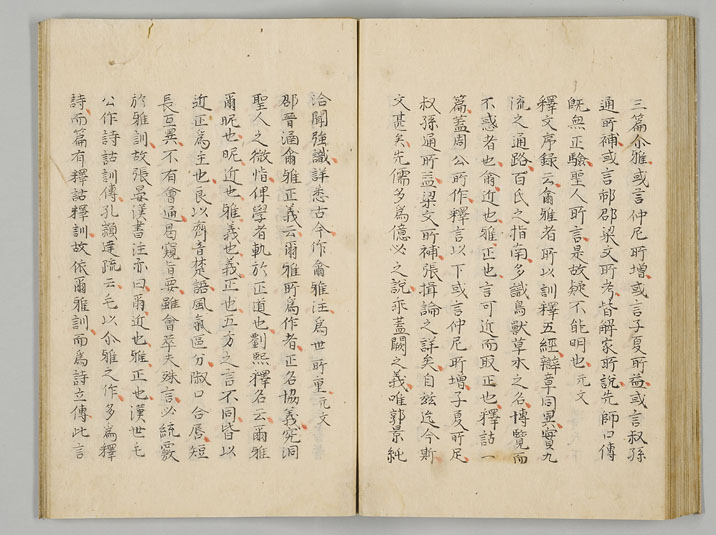 三篇尒雅或言仲尼所增或言子夏所益或言叔孫
通所補或言郁郡梁文所考皆解家所說先師口傳
既無正驗聖人所言是故疑不能明也元文
釋文序録云爾雅者所以訓釋五經辯章同異實九
流之通路百氏之指南多識鳥獸草木之名博覽而
不惑者也爾近也雅正也言可近而取正也釋詁一
篇蓋周公所作釋言以下或言仲尼所增子夏所足
叔孫通所益梁文所補張揖論之詳矣自玆迄今斯
文甚矣先儒多為億必之說乖蓋闕之義唯郭景純
洽聞強識詳悉古今作爾雅注為世所重元文
郡晉涵爾雅正義云爾雅所為作者正名協義究洞
聖人之微恉俾學者軌於正道也劉熙釋名云爾雅
爾昵也昵近也雅義也義正也五方之言不同皆以
近正為主也良以齊音楚語風氣區分歙口合唇短
長互異不有會通曷窺旨要雖會萃夫殊言必統覈
於雅訓故張晏漢書注亦曰爾近也雅正也漢世毛
公作詩詁訓傳孔穎達疏云毛以尒雅之作多為釋
詩而篇有釋詁釋訓故依爾雅訓而為詩立傳此言